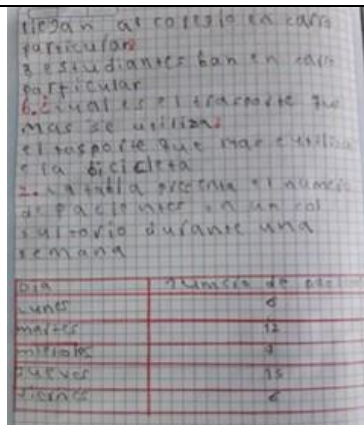 llegan al colegio en carro
particular
3 estudiantes ban en carro
particular
b. cual es el trasporte que
mas se utiliza
el trasporte que mas utiliza
la bicicleta
2. la tabla presenta el numero
de pacientes en un
durante una
semana
Dia numero de
Lunes 8
martes 12
jueves 15
viernes